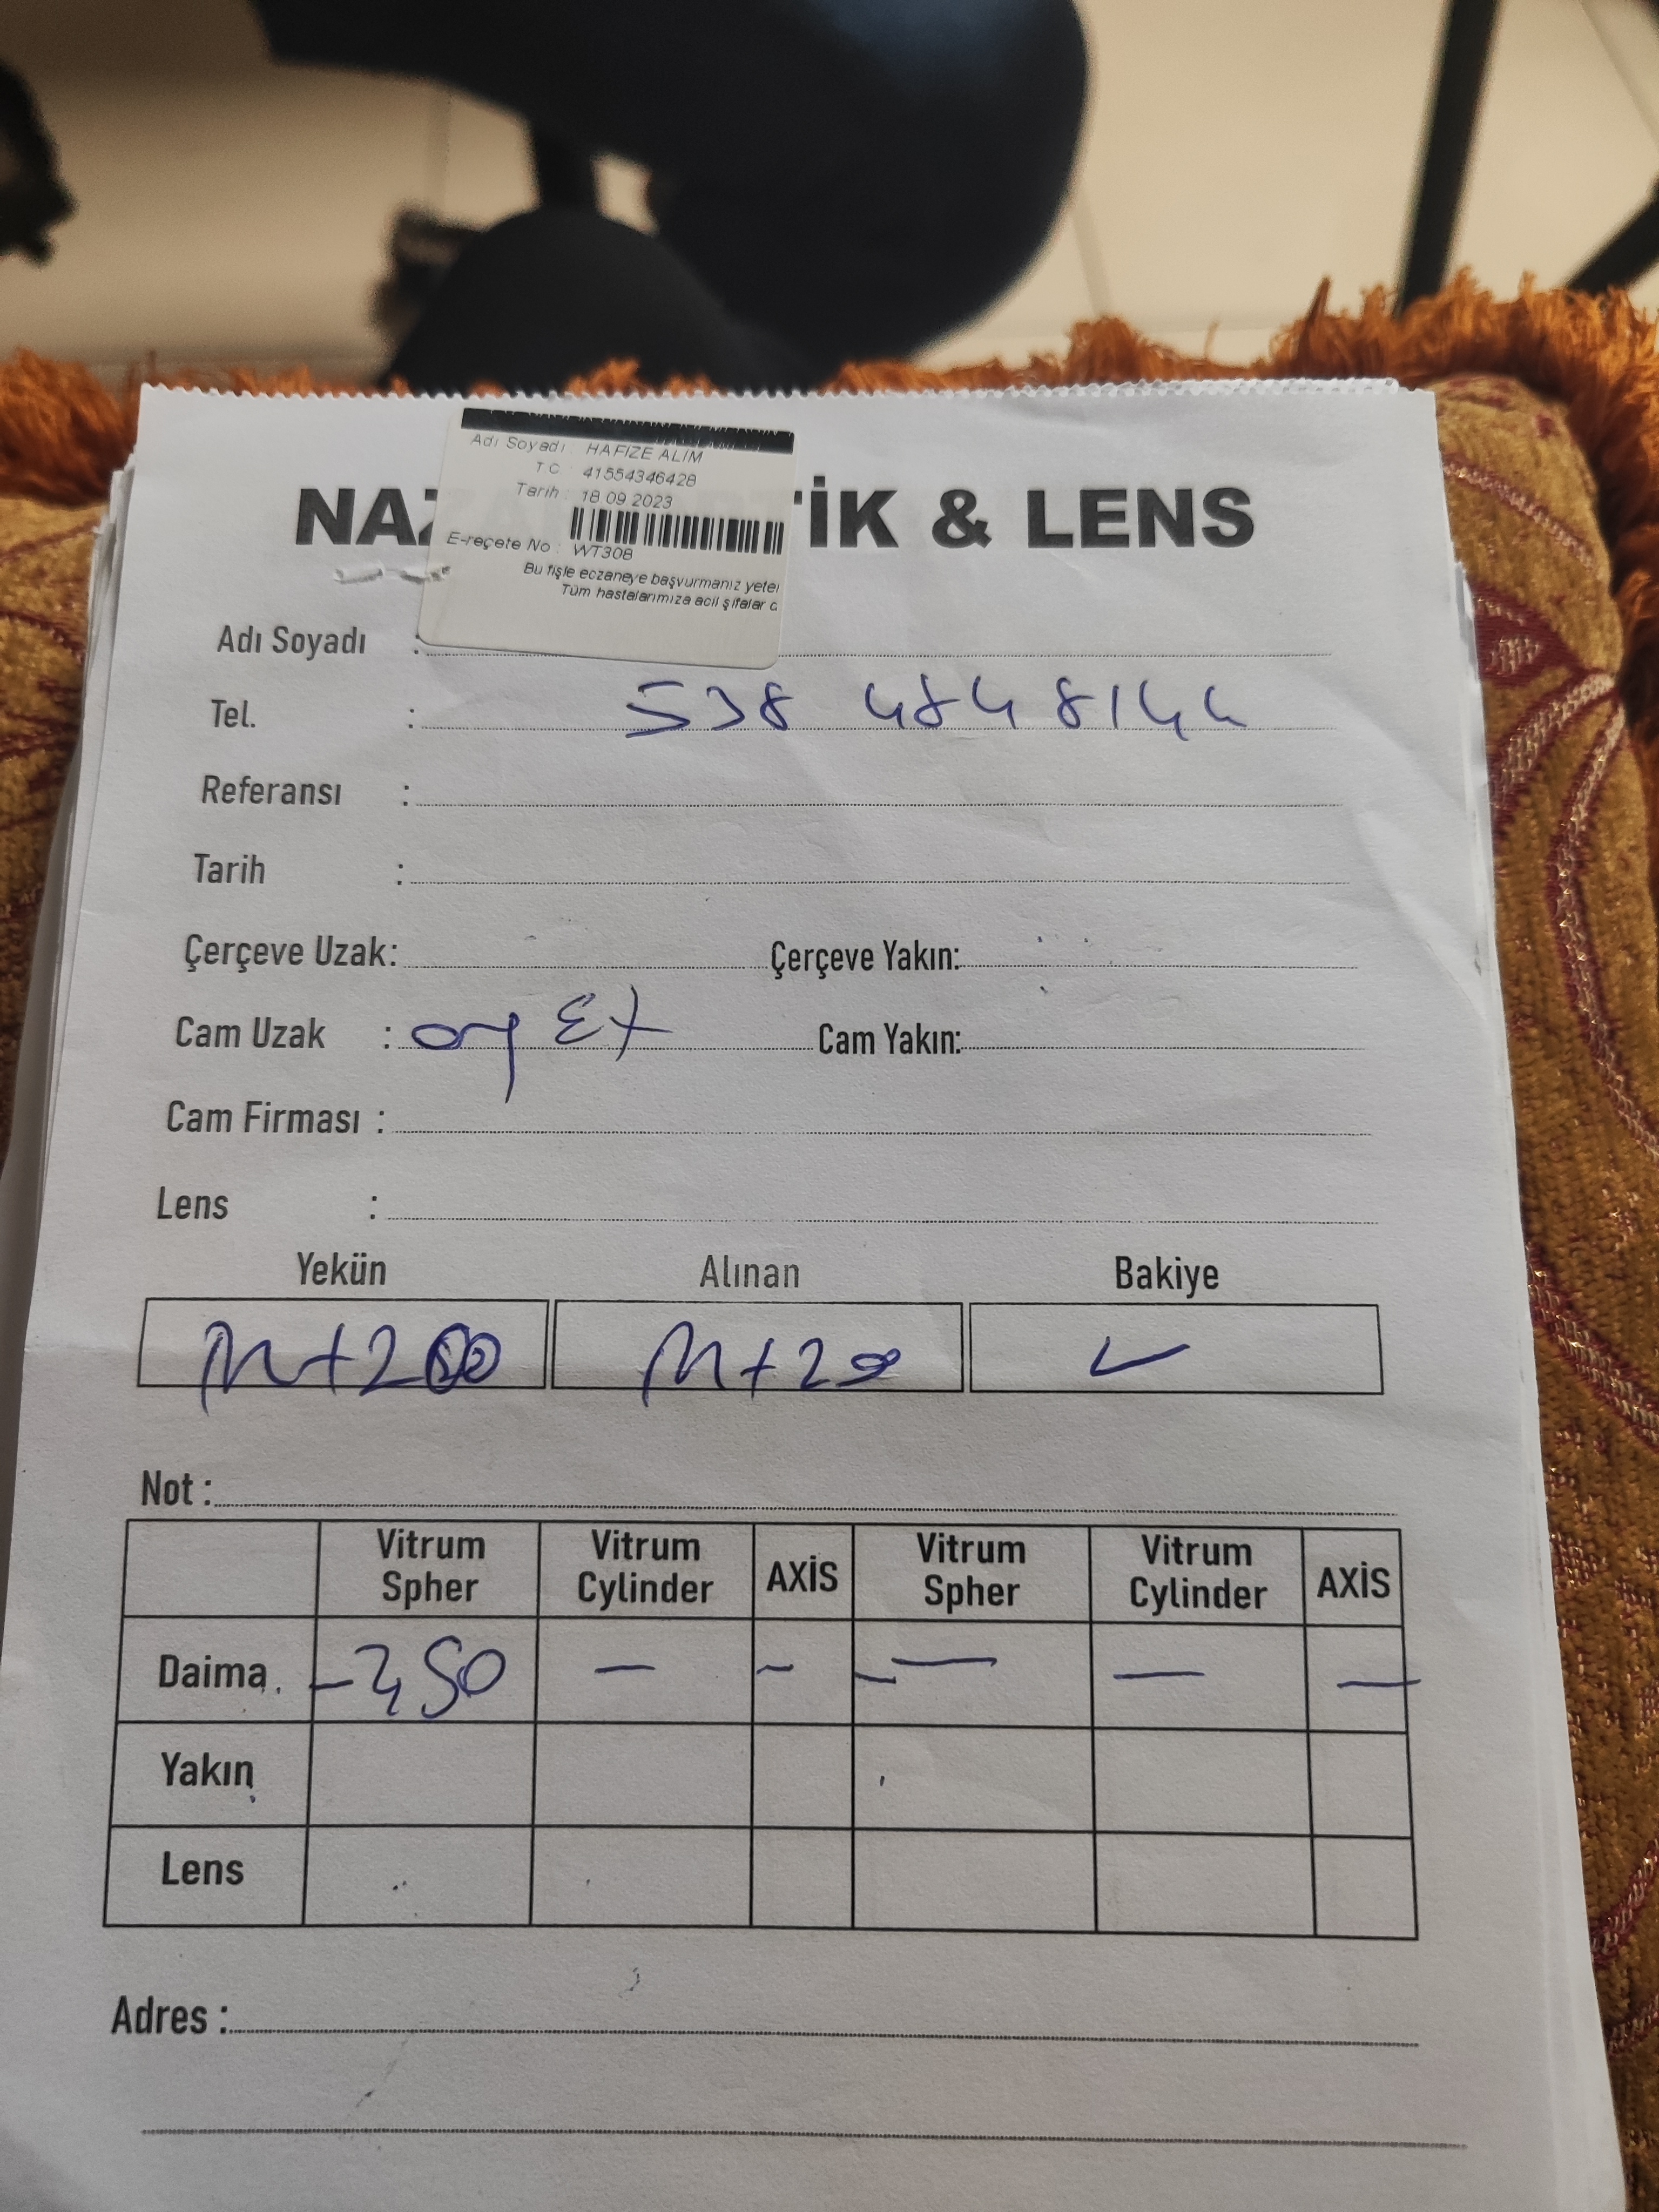 Adı Soyadı : HAFIZE ALIM
TC : 41554346428
Tarih : 18 09 2023
E-reçete No : WT308
Bu fişle eczaneye başvurmanız yeter
Tüm hastalarımıza acil şifalar d
NAZ TİK & LENS
Adı Soyadı :
Tel. : 538 484 8144
Referansı :
Tarih :
Çerçeve Uzak: Çerçeve Yakın:
Cam Uzak : Cam Yakın:
Cam Firması :
Lens :
Yekün Alınan Bakiye
Not :
Vitrum Spher Vitrum Cylinder AXİS Vitrum Spher Vitrum Cylinder AXİS
Daima - — - — — —
Yakın
Lens
Adres :